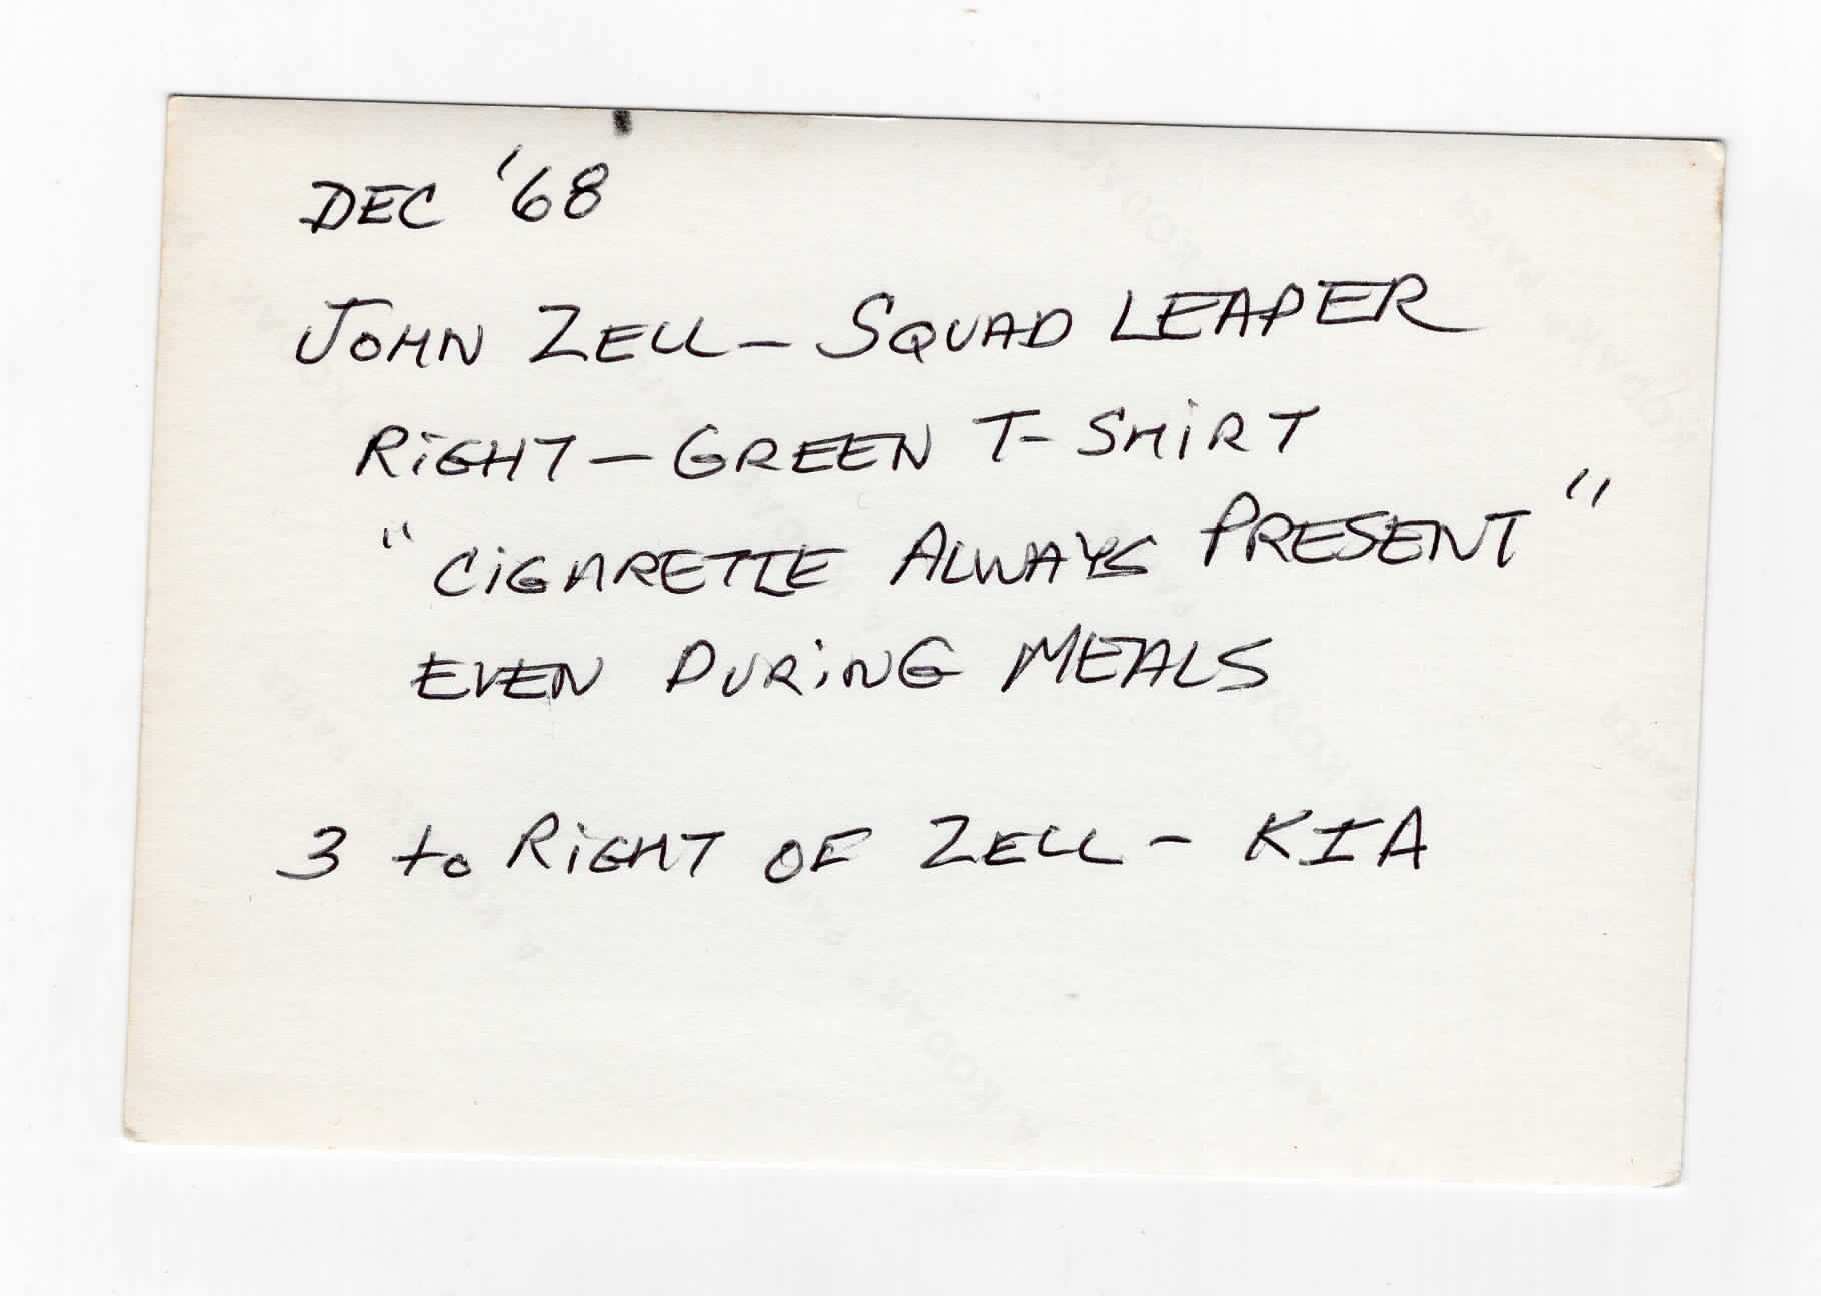 DEC '68
JOHN ZELL - SQUAD LEADER
RIGHT - GREEN T-SHIRT
"CIGARETTE ALWAYS PRESENT"
EVEN DURING MEALS
3 to RIGHT OF ZELL - KIA